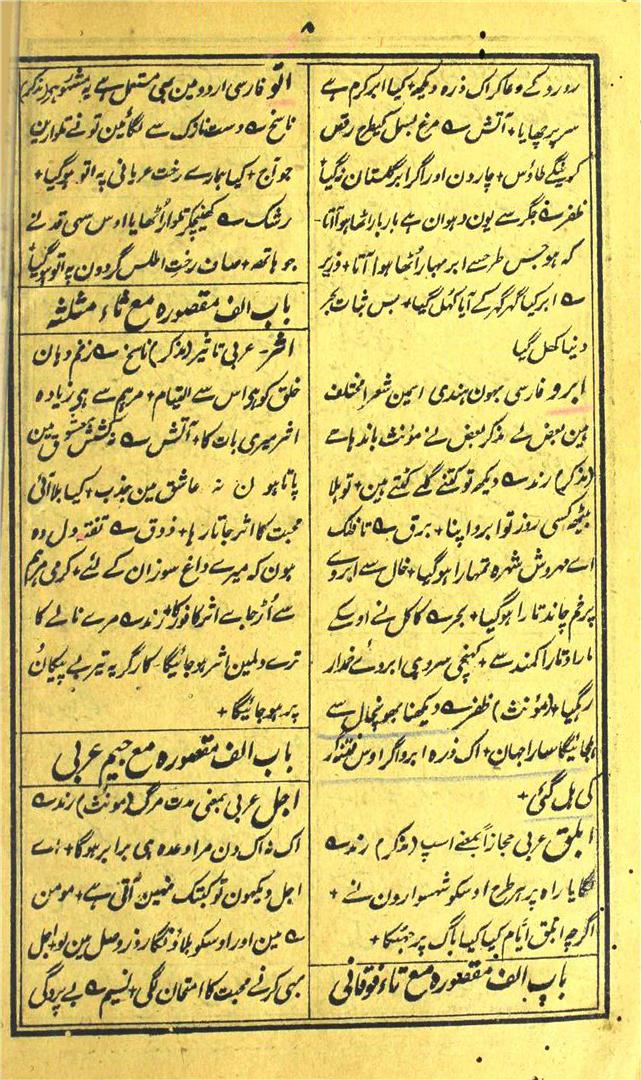 ۸
رو رو کے دعا کر اک ذرہ دیکھ + کیا ابر کرم ہے
سر پر چھایا + آتش ؎ مرغ بسمل کیطرح رقص
کرینگے طاؤس + چار دن اور اگر ابر گلستان نرگیا
ظفر ؎ جگر سے یون دہوان ہے بار بار اٹھا ہوا آتا۔
کہ ہو جس طرحسے ابر بہار اُٹھا ہوا آتا + وزیر
؎ ابر کیا گھر گھر کے آیا کھل گیا + بس ثبات بحر
دنیا کھل گیا
ابرو فارسی بہون ہندی اسمین شعرا مختلف
ہین بعض نے مذکر بعض نے مؤنث باندہا ہے
(مذکر) رند ؎ دیکھ تو کتنے گلے کٹتے ہین + تو ہلا
بیٹھ کسی روز تو ابرو اپنا + برق ؎ تا فلک
اے مہروش شہرہ تمہارا ہو گیا + خال سے ابروے
پر خم چاند تارا ہو گیا + بحر ؎ کاکل نے اوسکے
مارا دتارا کمند سے + کہنچی سروہی ابروئے خمدار
رہگیا + (مؤنث) ظفر ؎ دیکھنا بھونچال سے
ہلجائیگا سارا جہان + اک ذرہ ابرو اگر اوس فتنہ گر
کی ہل گئی +
ابلق عربی مجازاً بمعنے اسپ (مذکر) رند ؎
لگایا راہ پر ہر طرح اوسکو شہسوارون نے +
اگرچہ ابلق ایّام کیا کیا باگ پر جھپکا +
باب الف مقصورہ مع تاء فوقانی
اتّو فارسی اردو مین بھی مستعمل ہے یہ مشہور ہے (مذکر)
ناسخ ؎ دست نازک سے لگائین تو نے تلوارین
جو آج + کیا ہمارے رخت عریانی پہ اتو ہو گیا +
رشک ؎ کھینچکر تلوار اُٹھایا اوس سہی قد نے
جو ہاتھ + صاف رخت اطلس گردون پہ اتو ہو گیا
باب الف مقصورہ مع ثاء مثلثہ
اثر۔ عربی تاثیر (مذکر) ناسخ ؎ زخم دہان
خلق کو ہو اس سے التیام + مرہم سے ہو زیادہ
اثر میری بات کا + آتش ؎ نہ کشش معشوق مین
پاتا ہون نہ عاشق مین جذب + کیا بلا آئی
محبت کا اثر جاتا رہا + ذوق ؎ تفتہ دل وہ
ہون کہ میرے داغ سوزان کے لئے + گرمی مرہم
سے اُڑ جاے اثر کافور کا + رند ؎ مرے نالے کا
ترے دلمین اثر ہو جائیگا + کارگر یہ تیر بے پیکانُ
پر ہو جائیگا +
باب الف مقصورہ مع جیم عربی
اجل عربی بمعنی مدت مرگ (مؤنث) رند ؎
اک نہ اک دن مرا وعدہ ہی برابر ہو گا + اے
اجل دیکھون تو کبتک نہین آتی ہے + مومن
؎ مین اور اوسکو بلاؤ نگا روز وصل مین لو + اجل
بہی کرنے محبت کا امتحان لگی + نسیم ؎ بے پردگی